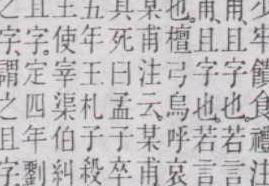 少牢饋食禮注
甫,且字也。若言
甫,且字也。若言
也。檀弓烏呼哀
某甫注云,某甫
其死曰孟子卒
五年王札子殺
王使宰渠伯糾
且字。定四年劉
之字謂之且字